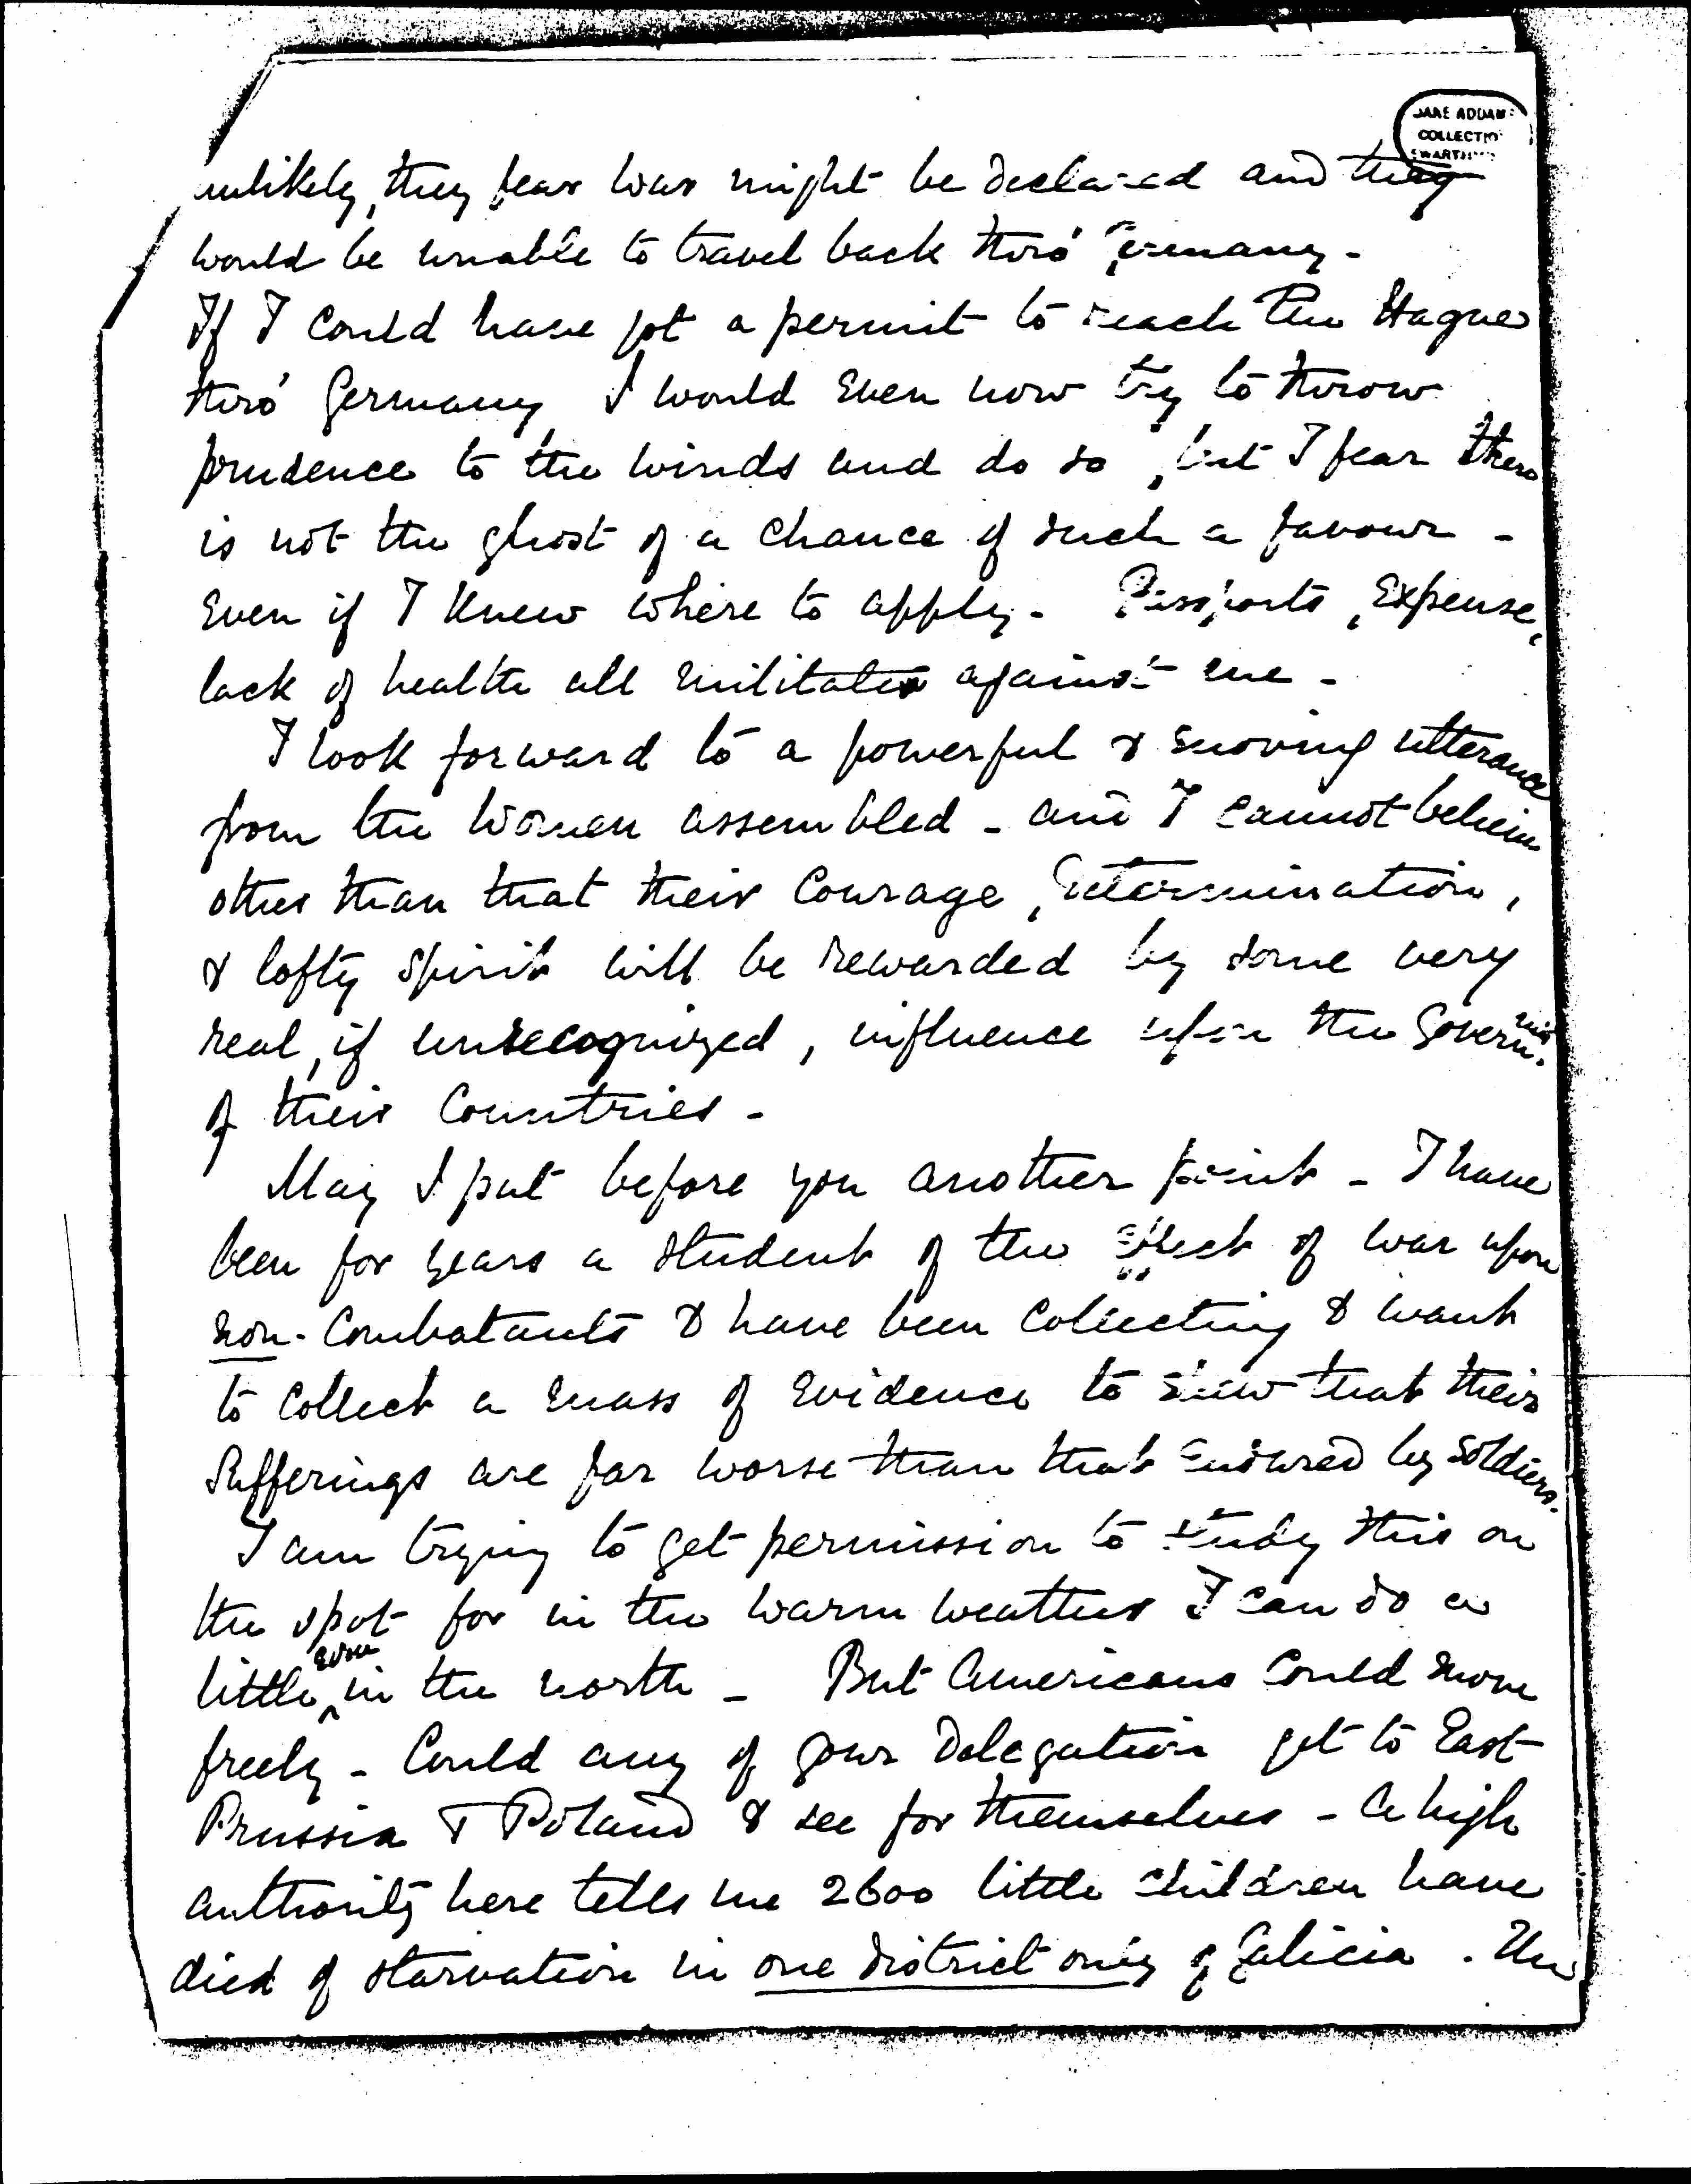 JANE ADDAMS
COLLECTIO
SWARTH
unlikely, they fear war might be declared and they
would be unable to travel back thro' Germany -
If I could have got a permit to reach The Hague
thro' Germany, I would even now try to throw
prudence to the winds and do so, but I fear there
is not the ghost of a chance of such a favour -
Even if I knew where to apply - Passports, Expense,
lack of health all militate against me -
I look forward to a powerful & moving utterance
from the Women assembled - and I cannot believe
other than that their Courage, determination,
& lofty spirit will be rewarded by some very
real, if unrecognized, influence upon the Governmts.
of their Countries -
May I put before you another point - I have
been for years a student of the effect of war upon
non-Combatants & have been collecting & want
to collect a mass of Evidence to shew that their
Sufferings are far worse than that endured by soldiers.
I am trying to get permission to study this on
the spot for in the warm weather I can do a
little even in the north - But Americans could move
freely - Could any of your Delegation get to East
Prussia & Poland & see for themselves - A high
authority here tells me 2600 little children have
died of starvation in one district only of Galicia. The